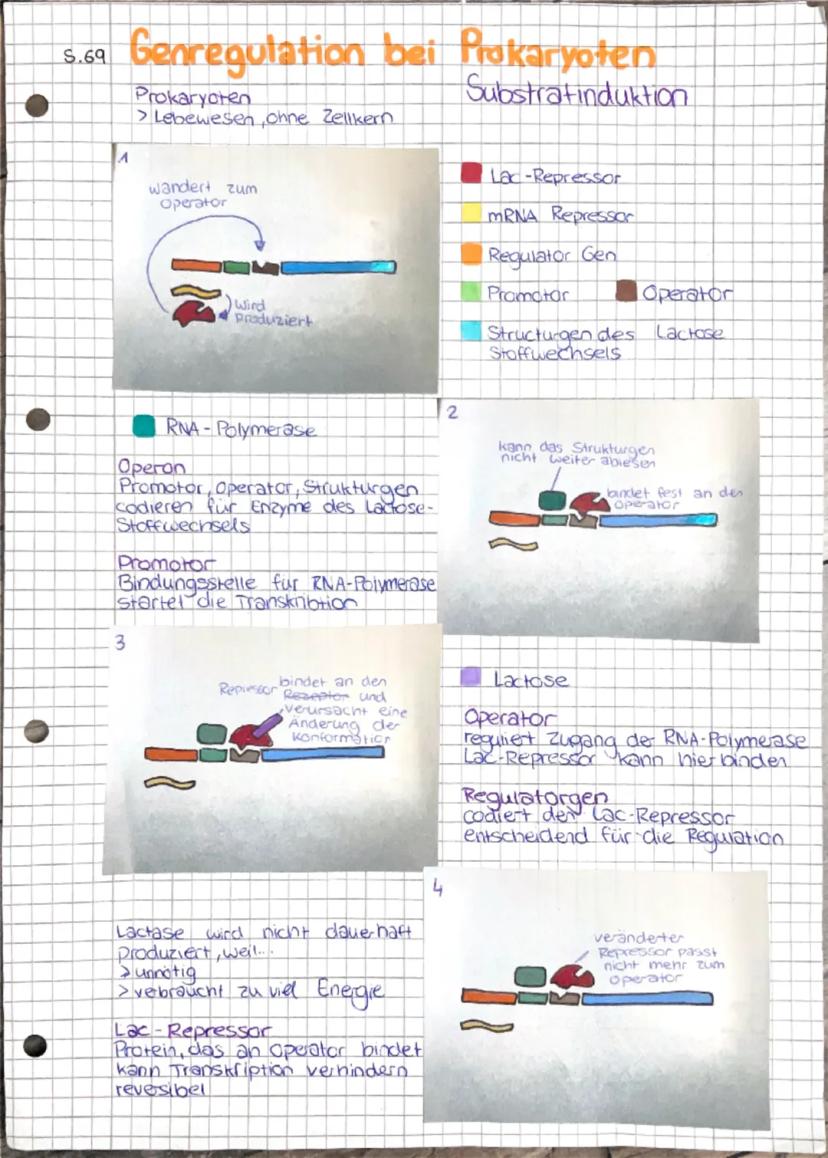 S.69 Genregulation bei Prokaryoten
Prokaryoten
> Lebewesen, ohne Zellkern
Substratinduktion
1
wandert zum
Operator
wird
produziert
Lac-Repressor
mRNA Repressor
Regulator Gen
Promotor
Operator
Structurgen des Lactose
Stoffwechsels
RNA-Polymerase
Operon
Promotor, Operator, Strukturgen
codieren für Enzyme des Lactose-
Stoffwechsels
Promotor
Bindungsstelle für RNA-Polymerase
startet die Transkribtion
2
kann das Strukturgen
nicht weiter ablesen
bindet fest an den
Operator
3
bindet an den
Repressor Rezeptor und
verursacht eine
Änderung der
Konformation
Lactose
Operator
reguliert Zugang der RNA-Polymerase
Lac-Repressor kann hier binden
Regulatorgen
codiert den Lac-Repressor
entscheidend für die Regulation
Lactase wird nicht dauerhaft
produziert, weil...
> unnötig
> verbraucht zu viel Energie
Lac-Repressor
Protein, das an Operator bindet
kann Transkription verhindern
reversibel
4
veränderter
Repressor passt
nicht mehr zum
Operator